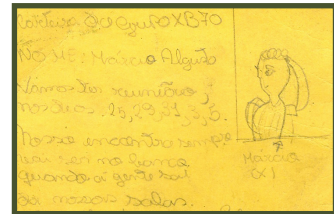 Carteira do Grupo XB70
NOME: Márcio Algusto
Vamos ter reunirão,
nos dia, 25,29,31,3,5.
Nosso encontro sempre
vai ser no banco
quando a gente sai
das nossas salas.
Márcio